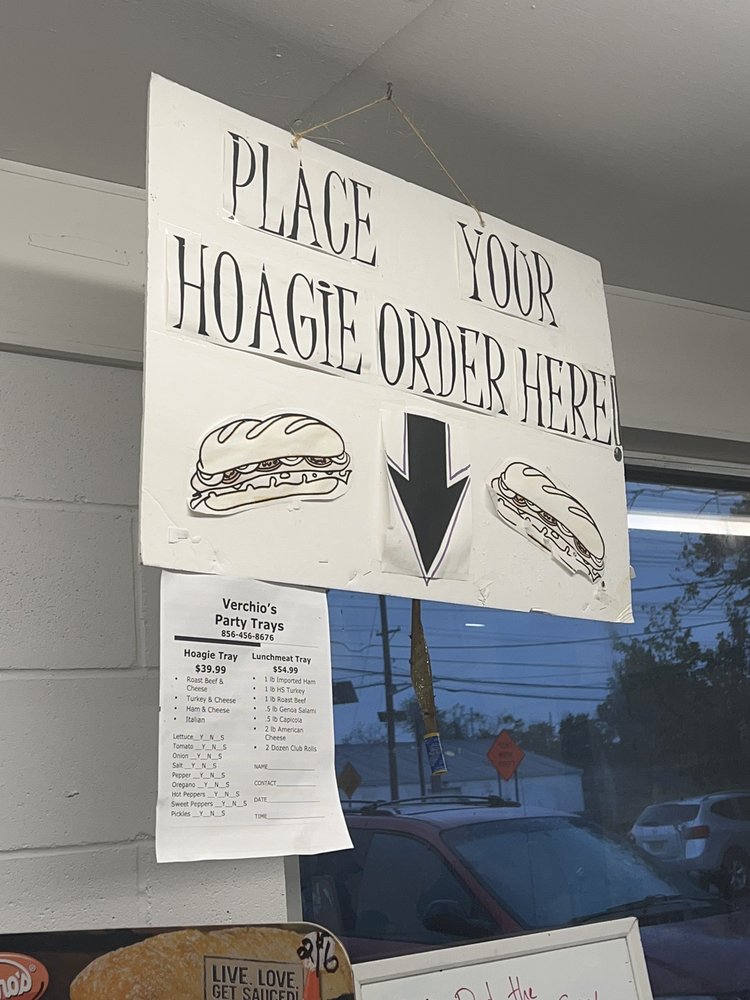 PLACE YOUR
HOAGIE ORDER HERE!
Verchio's
Party Trays
856-456-8676
Hoagie Tray
$39.99
• Roast Beef &
Cheese
• Turkey & Cheese
• Ham & Cheese
• Italian
Lettuce__Y__N__S
Tomato __Y__N__S
Onion __Y__N__S
Salt __Y__N__S
Pepper __Y__N__S
Oregano __Y__N__S
Hot Peppers __Y__N__S
Sweet Peppers __Y__N__S
Pickles __Y__N__S
Lunchmeat Tray
$54.99
• 1 lb Imported Ham
• 1 lb HS Turkey
• 1 lb Roast Beef
• .5 lb Genoa Salami
• .5 lb Capicola
• 2 lb American
Cheese
• 2 Dozen Club Rolls
NAME
CONTACT
DATE
TIME
LIVE. LOVE.
GET SAUCED!
the